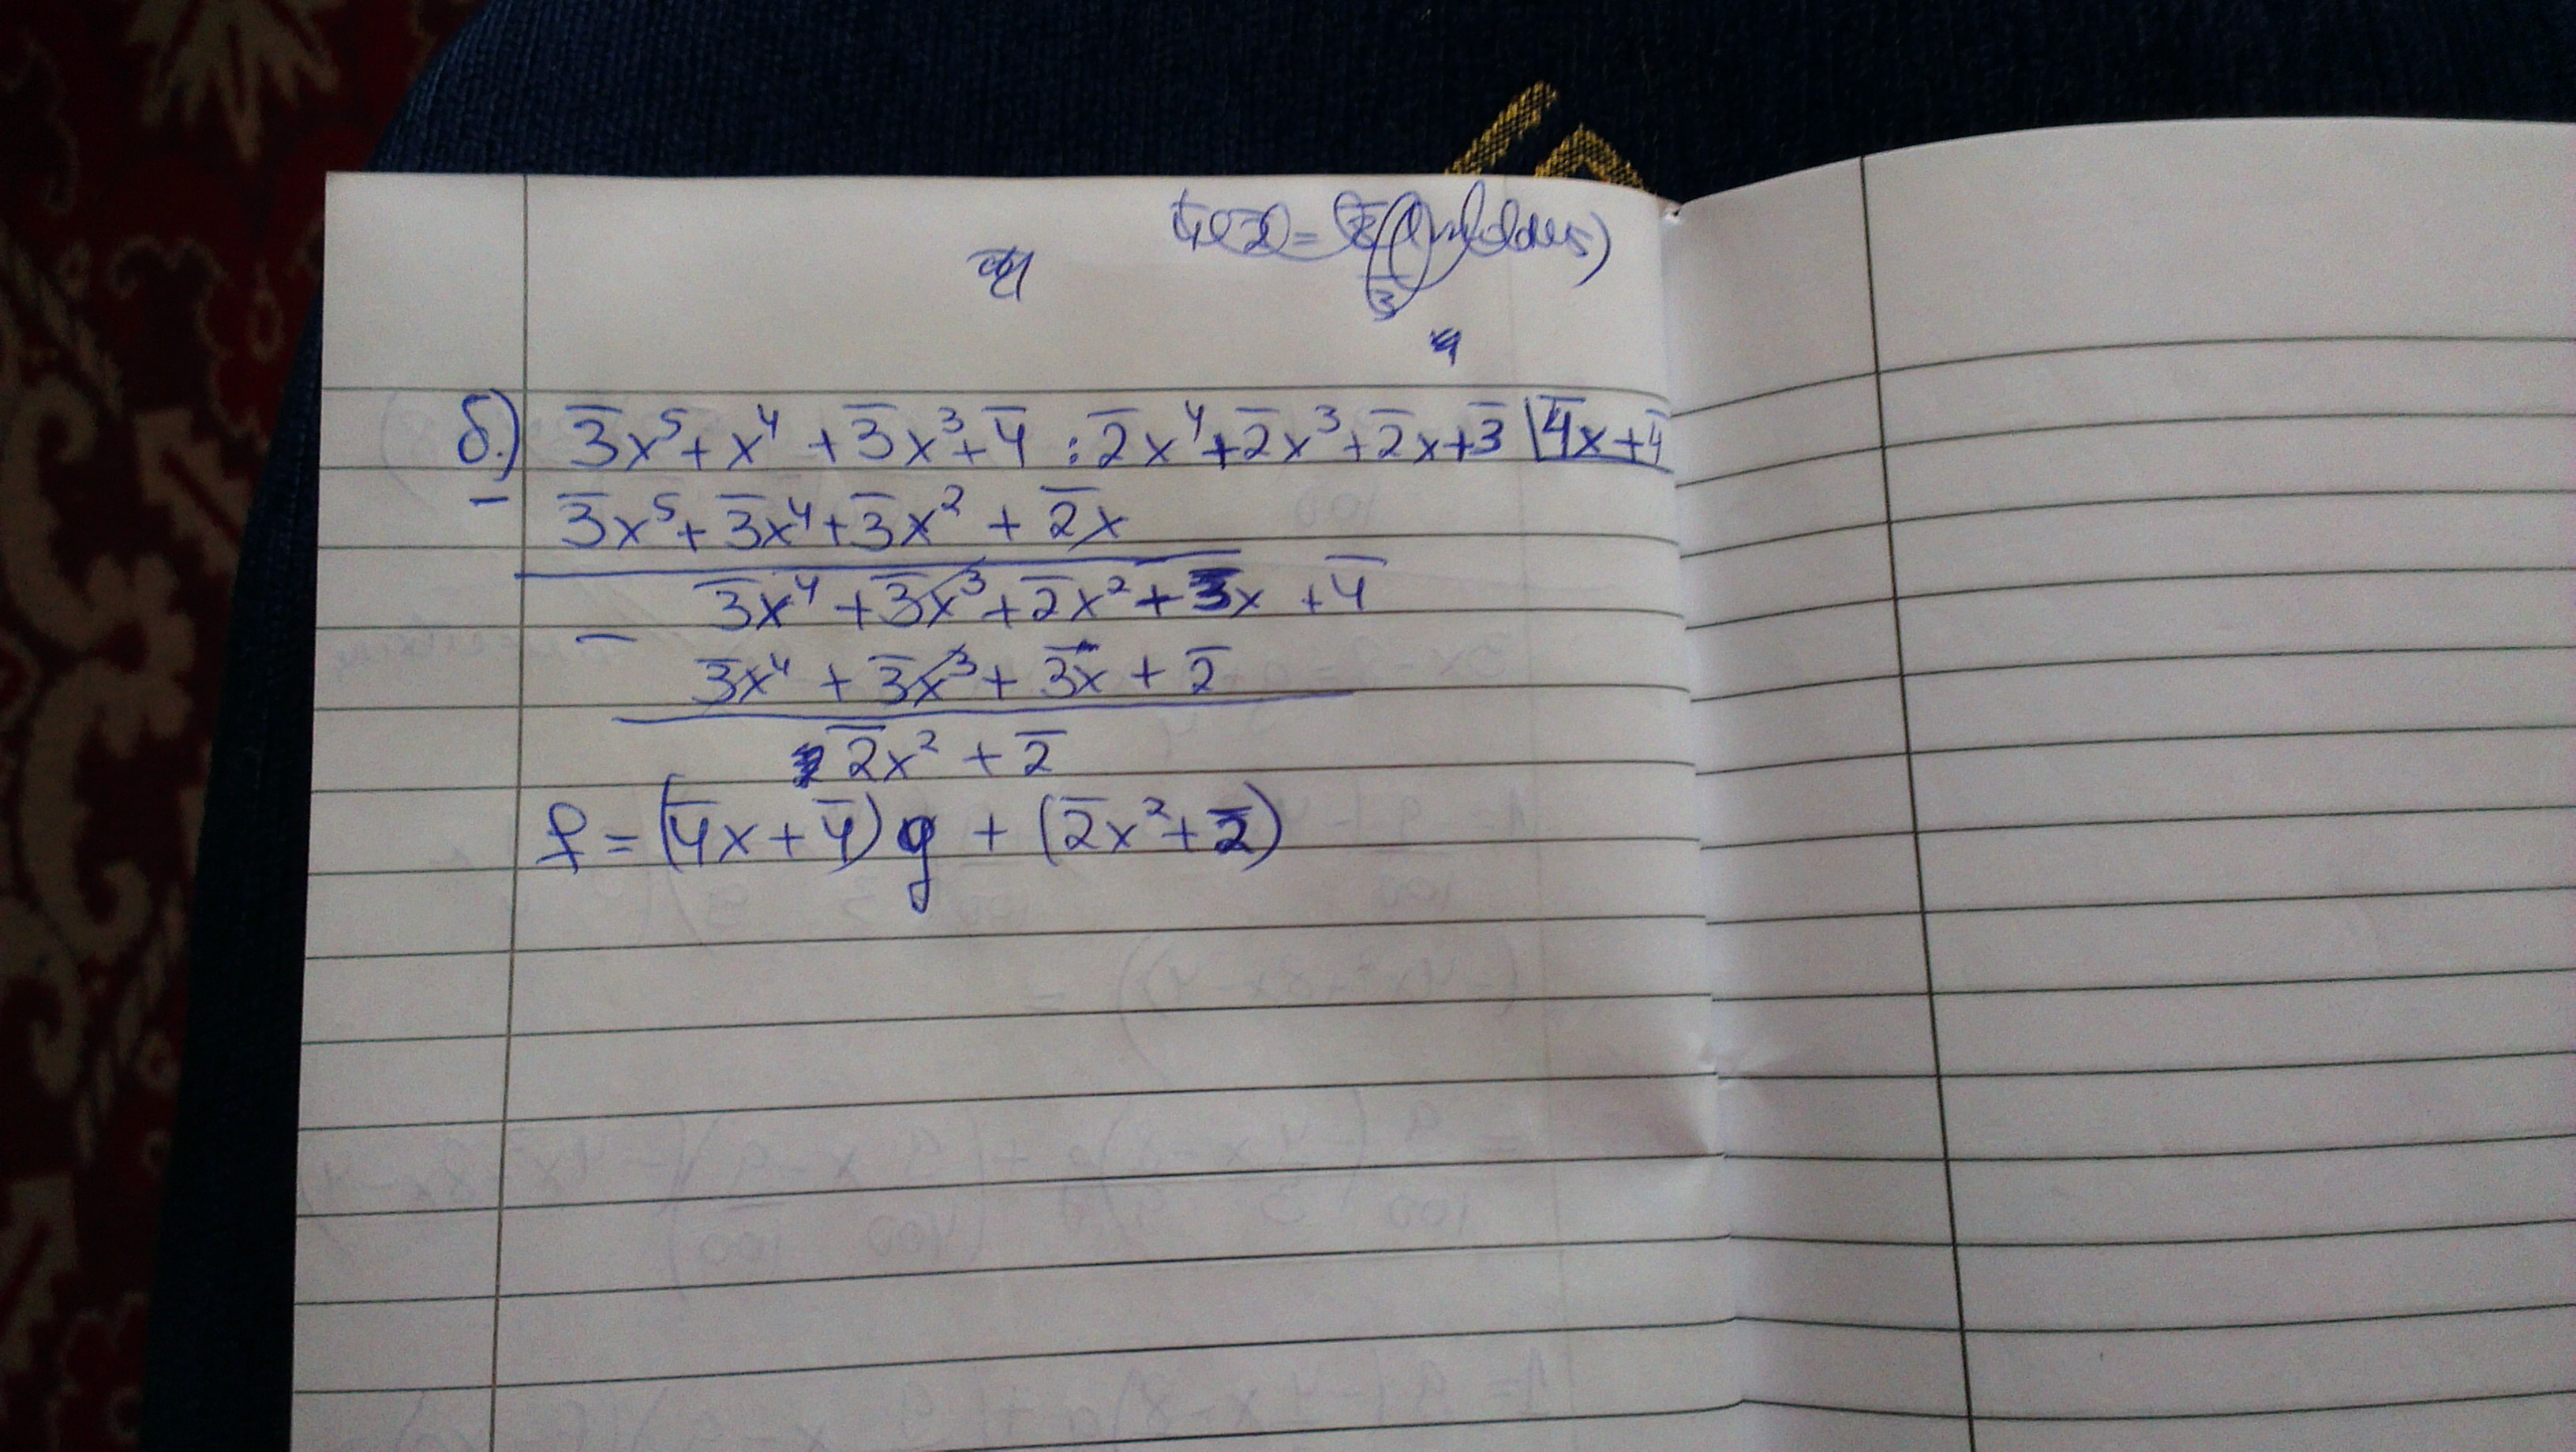 б.) 3̅x⁵+x⁴+3̅x³+4̅ : 2̅x⁴+2̅x³+2̅x+3̅ |4̅x+4̅
− 3̅x⁵+3̅x⁴+3̅x²+2̅x
3̅x⁴+3̅x³+2̅x²+3̅x+4̅
− 3̅x⁴+3̅x³+3̅x+2̅
2̅x²+2̅
f=(4̅x+4̅)g+(2̅x²+2̅)